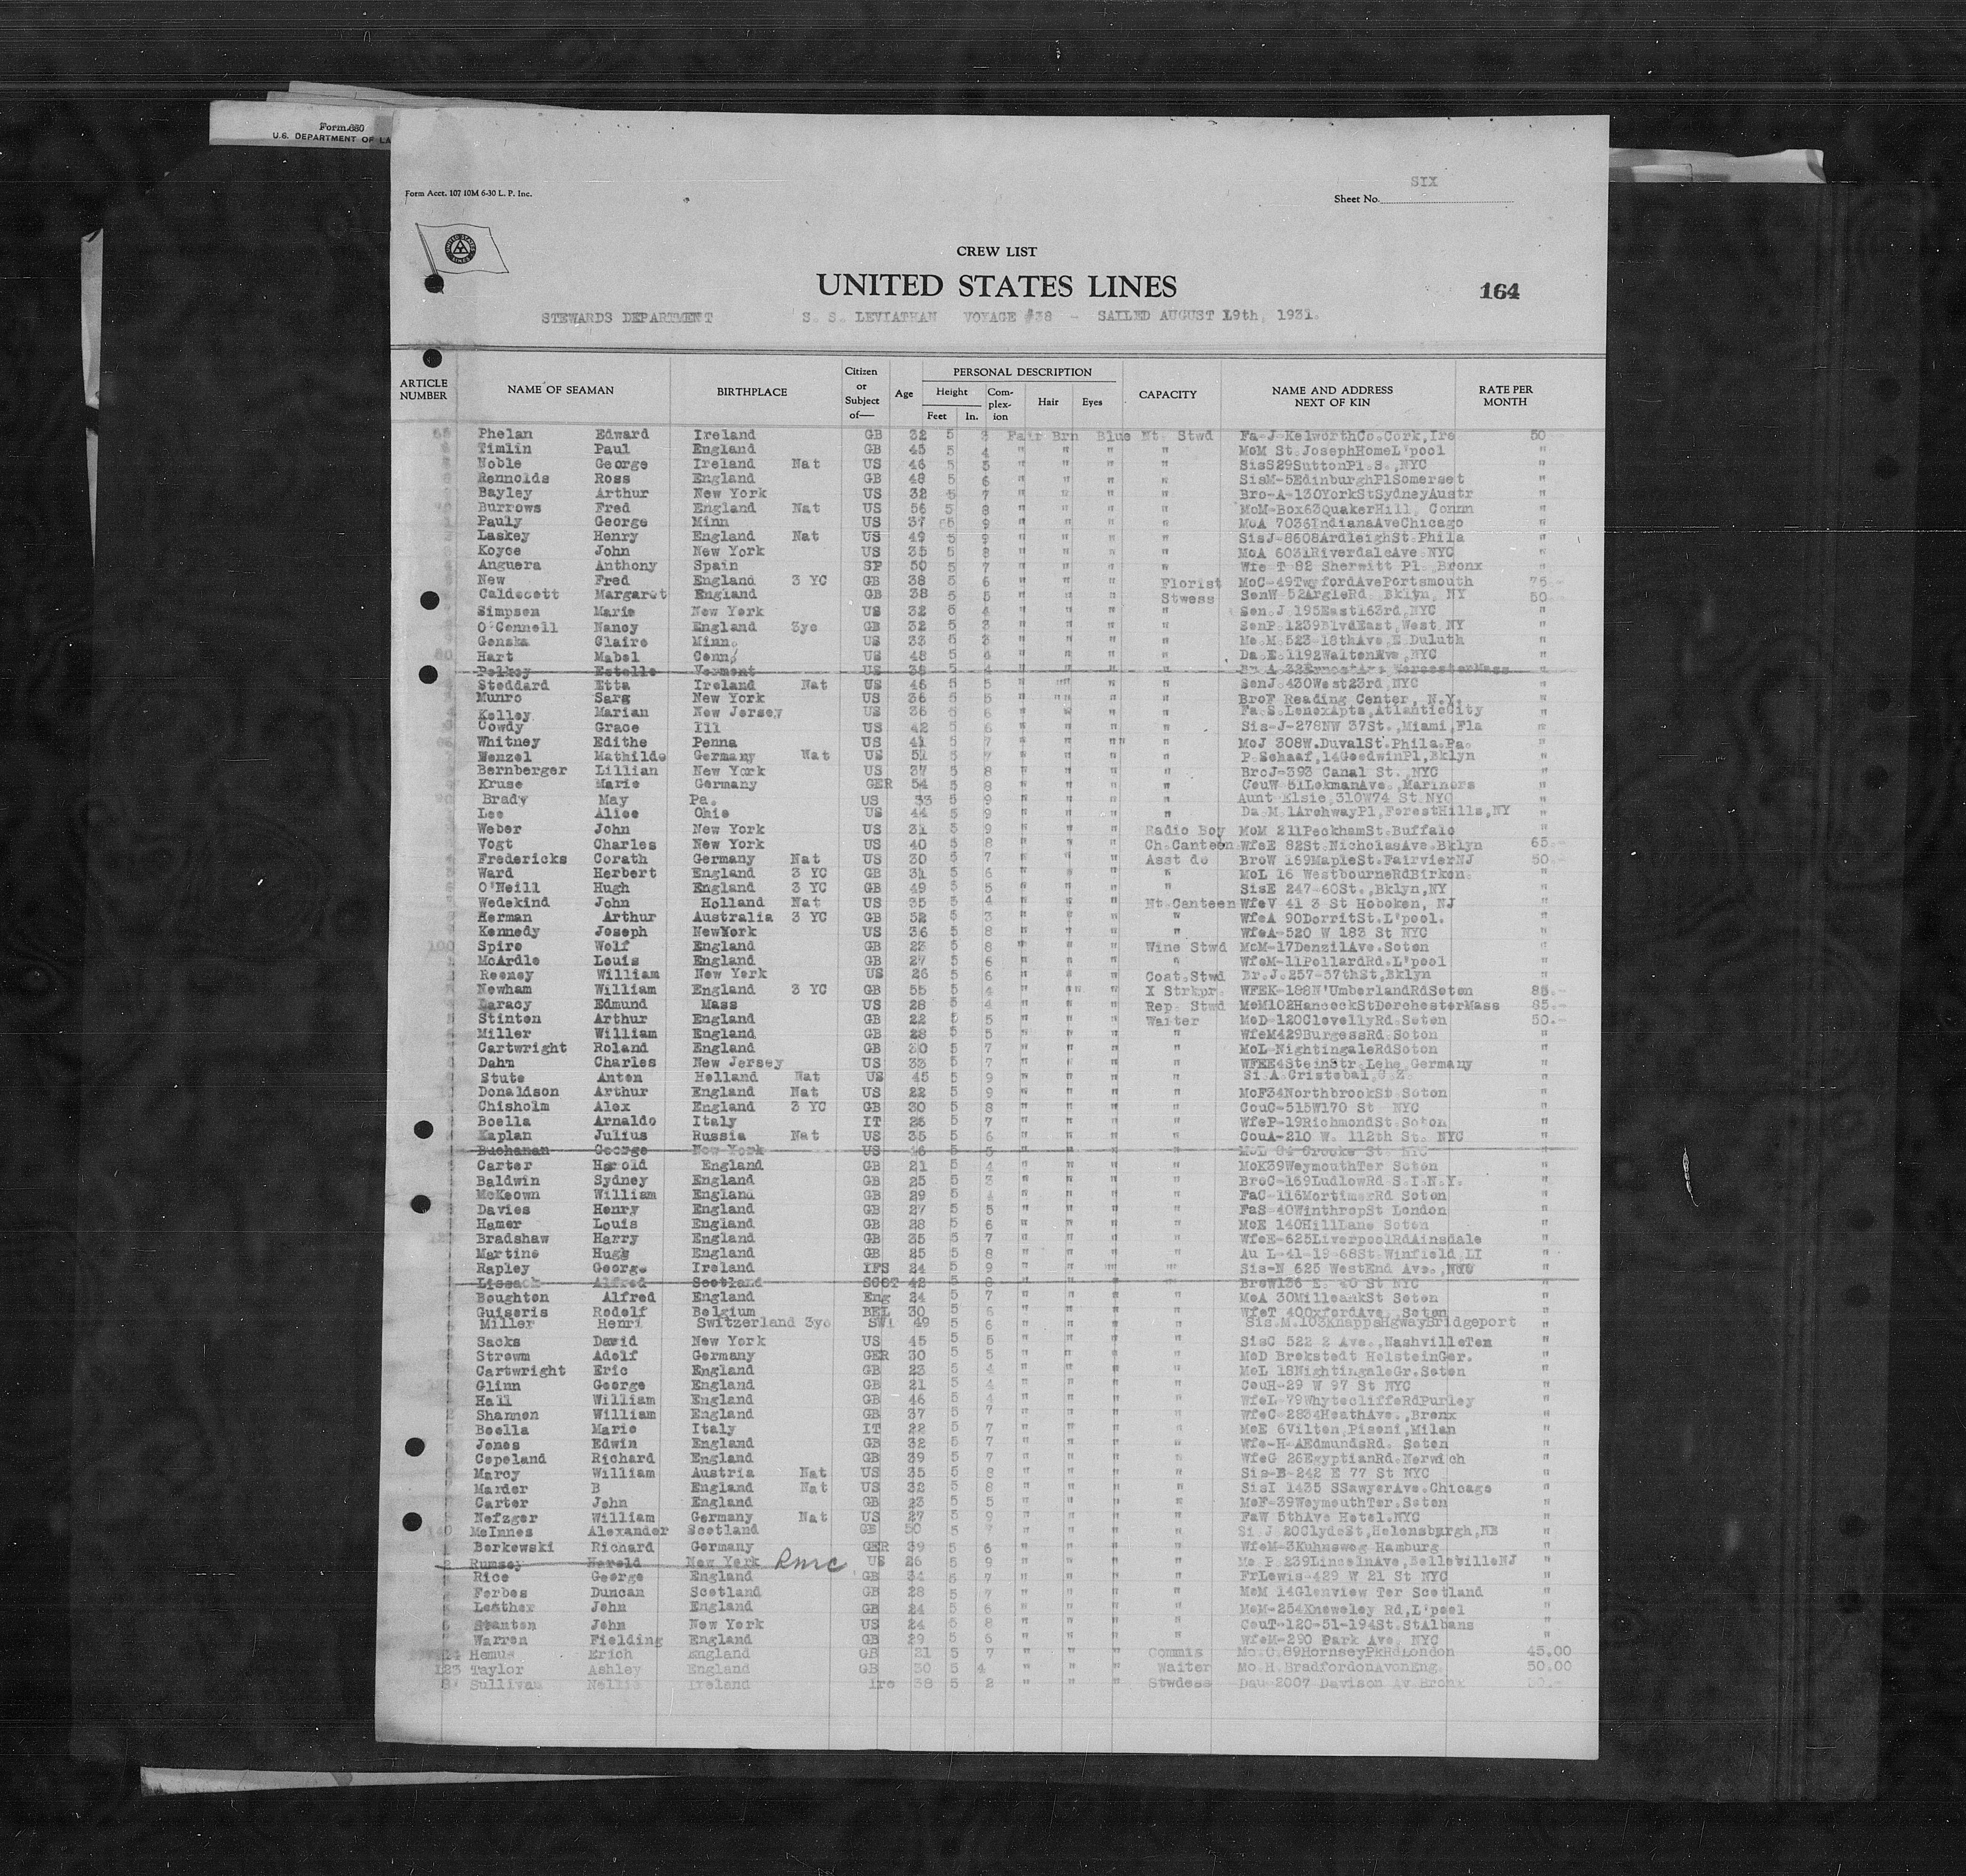 Form 680
U.S. DEPARTMENT OF LA
Form Acct. 107 10M 6-30 L. P. Inc.
SIX
Sheet No.
UNITED STATES LINES
CREW LIST
UNITED STATES LINES
164
STEWARDS DEPARTMENT S. S. LEVIATHAN VOYAGE #38 - SAILED AUGUST 19th, 1931.
ARTICLE NUMBER NAME OF SEAMAN BIRTHPLACE Citizen or Subject of— Age PERSONAL DESCRIPTION Height Feet In. Complexion Hair Eyes CAPACITY NAME AND ADDRESS NEXT OF KIN RATE PER MONTH
Phelan Edward Ireland GB 32 5 3 Fair Brn Blue Nt. Stwd Fa-J-KelworthCo.Cork,Ire 50
Timlin Paul England GB 45 5 4 " " " " MoM St.JosephHomeL'pool "
Noble George Ireland Nat US 46 5 5 " " " " SisS29SuttonPl.S.,NYC "
Rennolds Ross England GB 48 5 6 " " " " SisM-5EdinburghPlSomerset "
Bayley Arthur New York US 32 5 7 " " " " Bro-A-130YorkStSydneyAustr "
Burrows Fred England Nat US 56 5 8 " " " " MoM-Box63QuakerHill, Connn "
Pauly George Minn US 37 5 9 " " " " MoA 7036IndianaAveChicago "
Laskey Henry England Nat US 49 5 9 " " " " SisJ-8608ArdleighSt.Phila "
Koyce John New York US 35 5 8 " " " " MoA 6031RiverdaleAve.NYC "
Anguera Anthony Spain SP 50 5 7 " " " " Wfe T 82 Sherwitt Pl. Bronx "
New Fred England 3 YC GB 38 5 6 " " " Florist MoC-49TwyfordAvePortsmouth 75.-
Caldecott Margaret England GB 38 5 5 " " " Stwess SonW 52ArgleRd. Bklyn, NY 50
Simpson Marie New York US 32 5 4 " " " " Son.J 195East163rd,NYC "
O'Connell Nancy England 3yc GB 32 5 3 " " " " SonP.1239BlvdEast,West NY "
Genska Claire Minn. US 33 5 3 " " " " Mo.M.523-18thAve.E.Duluth "
80 Hart Mabel Conn. US 48 5 4 " " " " Da.E.1192WaltonAve,NYC "
Pelkey Estelle Vermont US 38 5 4 " " " " WorcesterMass "
Stoddard Etta Ireland Nat US 46 5 5 " " " " SonJ.430West23rd,NYC "
Munro Sarg New York US 36 5 5 " " " " BroF Reading Center, N.Y. "
Kelley Marian New Jersey US 36 5 6 " " " " Fa.S.LenoxApts,AtlanticCity "
Cowdy Grace Ill US 42 5 6 " " " " Sis-J-278NW 37St.,Miami,Fla "
Whitney Edithe Penna US 41 5 7 " " " " MoJ 308W.DuvalSt.Phila.Pa. "
Wenzel Mathilde Germany Nat US 51 5 7 " " " " P.Schaaf,14GoodwinPl,Bklyn "
Bernberger Lillian New York US 37 5 8 " " " " BroJ-393 Canal St. NYC "
Kruse Marie Germany GER 54 5 8 " " " " CouW 51LokmanAve. Mariners "
90 Brady May Pa. US 33 5 9 " " " " Aunt Elsie,310W74 St NYC "
Lee Alice Ohio US 44 5 9 " " " " Da.M.1ArchwayPl,ForestHills,NY "
Weber John New York US 31 5 9 " " " Radio Boy MoM 211PeckhamSt.Buffalo "
Vogt Charles New York US 40 5 8 " " " Ch.Canteen WfeE 82St.NicholasAve.Bklyn 65.-
Fredericks Corath Germany Nat US 30 5 7 " " " Asst do BroW 169MapleSt.FairvierNJ 50.-
Ward Herbert England 3 YC GB 31 5 6 " " " " MoL 16 WestbourneRdBirken. "
O'Neill Hugh England 3 YC GB 49 5 5 " " " " SisE 247-60St.,Bklyn,NY "
Wedekind John Holland Nat US 35 5 4 " " " Nt.Canteen WfeV 41 3 St Hoboken, NJ "
Herman Arthur Australia 3 YC GB 52 5 3 " " " " WfeA 90DorritSt.L'pool. "
Kennedy Joseph NewYork US 36 5 8 " " " " WfeA-520 W 183 St NYC "
100 Spiro Wolf England GB 23 5 8 " " " Wine Stwd MoM-17DenzilAve.Soton "
McArdle Louis England GB 27 5 6 " " " " WfeM-11PollardRd.L'pool "
Reeney William New York US 26 5 6 " " " Coat.Stwd Br.J.257-37thSt,Bklyn "
Newham William England 3 YC GB 55 5 4 " " " X Strkpr. WFEK-188N'UmberlandRdSoton 85.-
Laracy Edmund Mass US 28 5 4 " " " Rep. Stwd MoM102HancockStDorchesterMass 85.-
Stinton Arthur England GB 22 5 5 " " " Waiter MoD-120ClovellyRd.Soton 50.-
Miller William England GB 28 5 5 " " " " WfeM429BurgessRd.Soton "
Cartwright Roland England GB 30 5 7 " " " " MoL NightingaleRdSoton "
Dahn Charles New Jersey US 33 5 7 " " " " WFEE4SteinStr.Lehe Germany "
Stute Anton Holland Nat US 45 5 9 " " " " Si.A.Cristobal,C.Z. "
Donaldson Arthur England Nat US 22 5 9 " " " " MoF34NorthbrookSt Soton "
Chisholm Alex England 3 YC GB 30 5 8 " " " " CouC-515W170 St NYC "
Boella Arnaldo Italy IT 26 5 7 " " " " WfeP-19RichmondSt Soton "
Kaplan Julius Russia Nat US 35 5 6 " " " " CouA-210 W. 112th St. NYC "
Buchanan George New York US 46 5 5 " " " " MoL 84 Crooke St NYC "
Carter Harold England GB 21 5 4 " " " " MoK39WeymouthTer Soton "
Baldwin Sydney England GB 25 5 3 " " " " BroC-169LudlowRd S.I.N.Y. "
McKeown William England GB 29 5 " " " " FaC-116MortimerRd Soton "
Davies Henry England GB 27 5 5 " " " " FaS-40WinthropSt London "
Hamer Louis England GB 28 5 6 " " " " MoE 140HillLane Soton "
Bradshaw Harry England GB 35 5 7 " " " " WfeE-625LiverpoolRdAinsdale "
Martine Hugh England GB 25 5 8 " " " " Au L-41-19-68St.Winfield LI "
Rapley George Ireland IFS 24 5 9 " " " " Sis-N 625 WestEnd Ave., NYC "
Lissack Alfred Scotland SCOT 42 5 8 " " " " BroW136 E. 40 St NYC "
Boughton Alfred England Eng 24 5 7 " " " " MoA 30MillbankSt Soton "
Guiseris Rodolf Belgium BEL 30 5 6 " " " " WfeT 40OxfordAve. Soton "
Miller Henri Switzerland 3yc SWi 49 5 6 " " " " Sis.M.103KnappsHgwayBridgeport "
Sacks David New York US 45 5 5 " " " " SisC 522 2 Ave.,NashvilleTen "
Strowm Adolf Germany GER 30 5 5 " " " " MoD Brokstedt HolsteinGer. "
Cartwright Eric England GB 23 5 4 " " " " MoL 18NightingaleGr.Soton "
Glinn George England GB 21 5 4 " " " " CouH-29 W 97 St NYC "
Hall William England GB 46 5 4 " " " " WfeL-79WhytecliffeRdPurley "
Shannon William England GB 37 5 7 " " " " WfeC-2834HeathAve.,Bronx "
Boella Mario Italy IT 22 5 7 " " " " MoE 6Vilton,Pisoni,Milan "
Jones Edwin England GB 32 5 7 " " " " Wfe-H-AEdmundsRd. Soton "
Copeland Richard England GB 39 5 7 " " " " WfeG 26EgyptianRd.Norwich "
Marcy William Austria Nat US 35 5 8 " " " " Sis-B-242 E 77 St NYC "
Marder B England Nat US 32 5 8 " " " " SisI 1435 SSawyerAve.Chicago "
Carter John England GB 23 5 5 " " " " MoF-39WeymouthTer.Soton "
Nefzger William Germany Nat US 27 5 9 " " " " FaW 5thAve Hotel.NYC "
140 McInnes Alexander Scotland GB 50 5 7 " " " " Si.J.20ClydeSt,Helensburgh,NB "
1 Borkowski Richard Germany GER 39 5 6 " " " " WfeM-3Kuhnsweg Hamburg "
2 Rumsey Harold New York RMC US 26 5 9 " " " " Mo.P.239LincolnAve,BellevilleNJ "
Rice George England GB 34 5 7 " " " " FrLewis-429 W 21 St NYC "
Forbes Duncan Scotland GB 28 5 7 " " " " MoM 14Glenview Ter Scotland "
Leather John England GB 24 5 6 " " " " MoM-254Knoweley Rd,L'pool "
Stanton John New York US 24 5 8 " " " " CouT-120-51-194St.StAlbans "
Warren Fielding England GB 29 5 6 " " " " WfeM-290 Park Ave. NYC "
Hemus Erich England GB 21 5 7 " " " Commis Mo.O.89HornseyPkRdLondon 45.00
123 Taylor Ashley England GB 30 5 4 " " " Waiter Mo.H.BradfordonAvonEng. 50.00
8 Sullivan Nellie Ireland Ire 38 5 2 " " " Stwdess Dau 2007 Davison Av Bronx 50.-